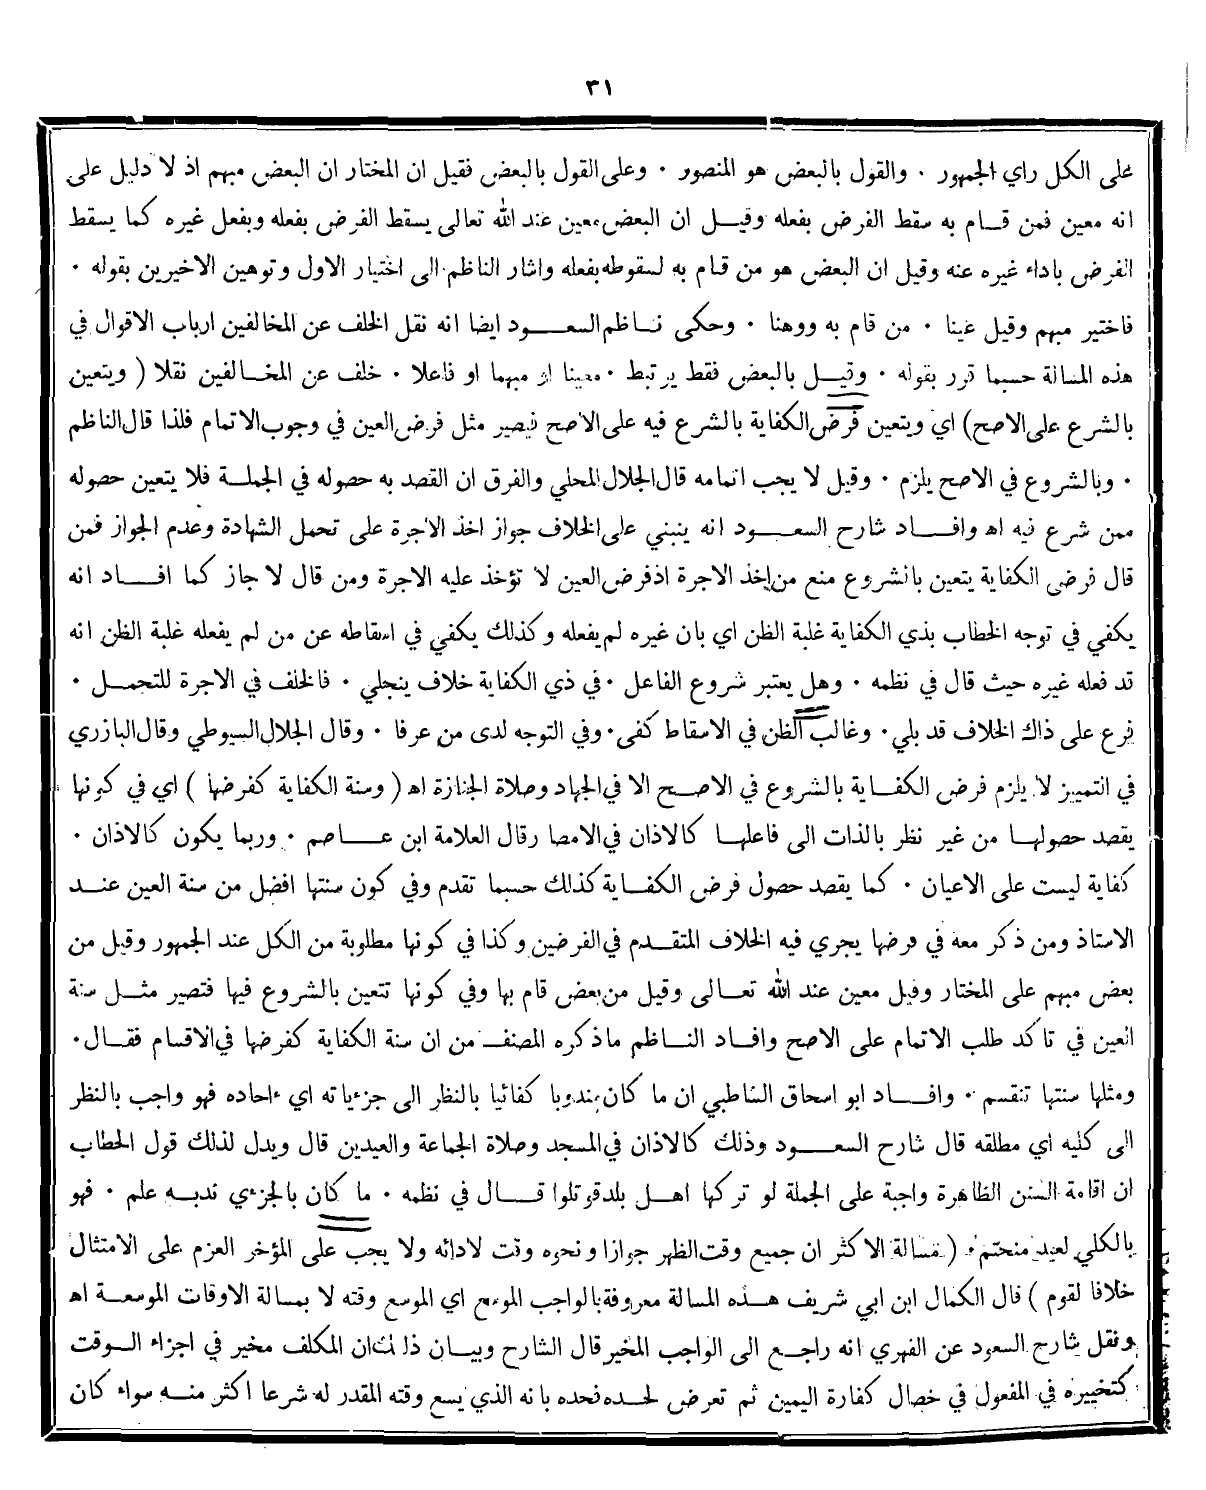 ٣١
على الكل راي الجمهور ٠ والقول بالبعض هو المنصور ٠ وعلى القول بالبعض فقيل ان المختار ان البعض مبهم اذ لا دليل على
انه معين فمن قـــام به سقط الفرض بفعله وقيـــل ان البعض معين عند الله تعالى يسقط الفرض بفعله وبفعل غيره كما يسقط
الفرض باداء غيره عنه وقيل ان البعض هو من قـام به لسقوطه بفعله واشار الناظم الى اختيار الاول وتوهين الاخيرين بقوله ٠
فاختير مبهم وقيل عينا ٠ من قام به ووهنا ٠ وحكى نــاظم السعـــود ايضا انه نقل الخلف عن المخالفين ارباب الاقوال في
هذه المسالة حسبما قرر بقوله ٠ وقيـــل بالبعض فقط يرتبط ٠ معينا او مبهما او فاعلا ٠ خلف عن المخـالفين نقلا ( ويتعين
بالشرع على الاصح) اي ويتعين فرض الكفاية بالشرع فيه على الاصح فيصير مثل فرض العين في وجوب الاتمام فلذا قال الناظم
٠ وبالشروع في الاصح يلزم ٠ وقيل لا يجب اتمامه قال الجلال المحلي والفرق ان القصد به حصوله في الجملـــة فلا يتعين حصوله
ممن شرع فيه اه وافـــاد شارح السعـــود انه ينبني على الخلاف جواز اخذ الاجرة على تحمل الشهادة وعدم الجواز فمن
قال فرض الكفاية يتعين بالشروع منع من اخذ الاجرة اذ فرض العين لا تؤخذ عليه الاجرة ومن قال لا جاز كما افـــاد انه
يكفي في توجه الخطاب بذي الكفاية غلبة الظن اي بان غيره لم يفعله وكذلك يكفي في اسقاطه عن من لم يفعله غلبة الظن انه
قد فعله غيره حيث قال في نظمه ٠ وهل يعتبر شروع الفاعل ٠ في ذي الكفاية خلاف ينجلي ٠ فالخلف في الاجرة للتحمـــل ٠
فرع على ذاك الخلاف قد بلي ٠ وغالب الظن في الاسقاط كفى ٠ وفي التوجه لدى من عرفا ٠ وقال الجلال السيوطي وقال البازري
في التمييز لا يلزم فرض الكفـــاية بالشروع في الاصـــح الا في الجهاد وصلاة الجنازة اه ( وسنة الكفاية كفرضها ) اي في كونها
يقصد حصولهـــا من غير نظر بالذات الى فاعلهـا كالاذان في الامصا رقال العلامة ابن عـــاصم ٠ وربما يكون كالاذان ٠
كفاية ليست على الاعيان ٠ كما يقصد حصول فرض الكفـــاية كذلك حسبما تقدم وفي كون سنتها افضل من سنة العين عنـــد
الاستاذ ومن ذكر معه في فرضها يجري فيه الخلاف المتقـــدم في الفرضين وكذا في كونها مطلوبة من الكل عند الجمهور وقيل من
بعض مبهم على المختار وقيل معين عند الله تعـــالى وقيل من بعض قام بها وفي كونها تتعين بالشروع فيها فتصير مثـــل سنة
العين في تاكد طلب الاتمام على الاصح وافـــاد النـــاظم ما ذكره المصنف من ان سنة الكفاية كفرضها في الاقسام فقـــال ٠
ومثلها سنتها تنقسم ٠ وافـــاد ابو اسحاق الشاطبي ان ما كان مندوبا كفائيا بالنظر الى جزءياته اي ءاحاده فهو واجب بالنظر
الى كليه اي مطلقه قال شارح السعـــود وذلك كالاذان في المسجد وصلاة الجماعة والعيدين قال ويدل لذلك قول الحطاب
ان اقامة السنن الظاهرة واجبة على الجملة لو تركها اهـــل بلد قوتلوا قـــال في نظمه ٠ ما كان بالجزءي ندبـــه علم ٠ فهو
بالكلي لعيد منحتم ٠ ( مسالة الاكثر ان جميع وقت الظهر جوازا ونحوه وقت لادائه ولا يجب على المؤخر العزم على الامتثال
خلافا لقوم ) قال الكمال ابن ابي شريف هـــذه المسالة معروفة بالواجب الموسع اي الموسع وقته لا بمسالة الاوقات الموسعـــة اه
ونقل شارح السعود عن الفهري انه راجـــع الى الواجب المخير قال الشارح وبيـــان ذلك ان المكلف مخير في اجزاء الـــوقت
كتخييره في المفعول في خصال كفارة اليمين ثم تعرض لحـــده فحده بانه الذي يسع وقته المقدر له شرعا اكثر منـــه سواء كان